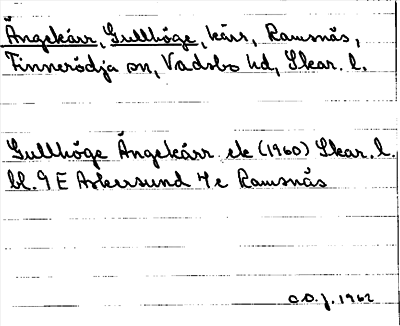 Ängekärr, Gullhöge, kärr, Ramsnäs,
Finnerödja sn, Vadsbo hd, Skar. l.
Gullhöge Ängekärr ek (1960) Skar. l.
bl. 9 E Askersund 7 e Ramsnäs
O.D.J. 1962